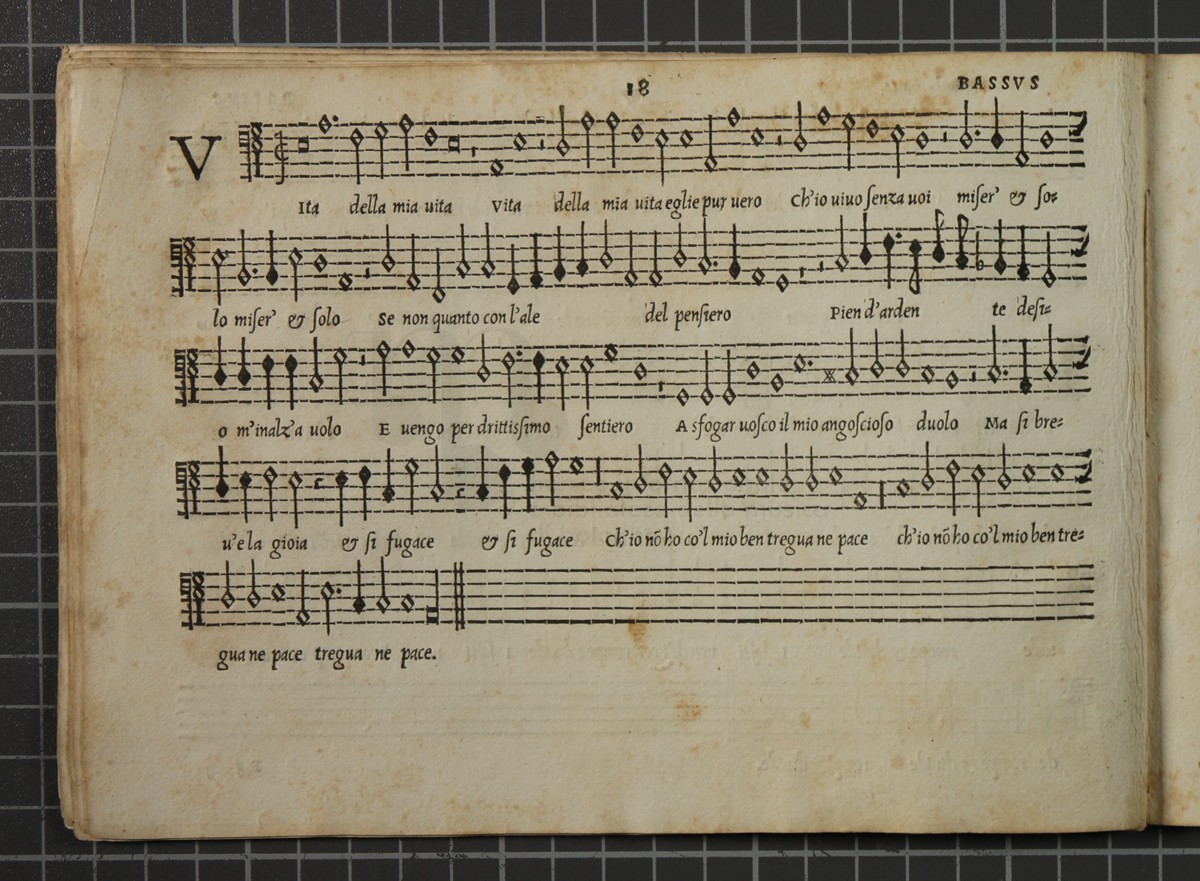 18 BASSVS
VIta della mia uita Vita della mia uita eglie pur uero Ch'io uiuo senza uoi miser' & so=
lo miser' & solo Se non quanto con l'ale del pensiero Pien d'arden te desi=
o m'inalz'a uolo E uengo per drittissimo sentiero A sfogar uosco il mio angoscioso duolo Ma si bre=
u'e la gioia & si fugace & si fugace Ch'io nõ ho co'l mio ben tregua ne pace ch'io nõ ho co'l mio ben tre=
gua ne pace tregua ne pace.